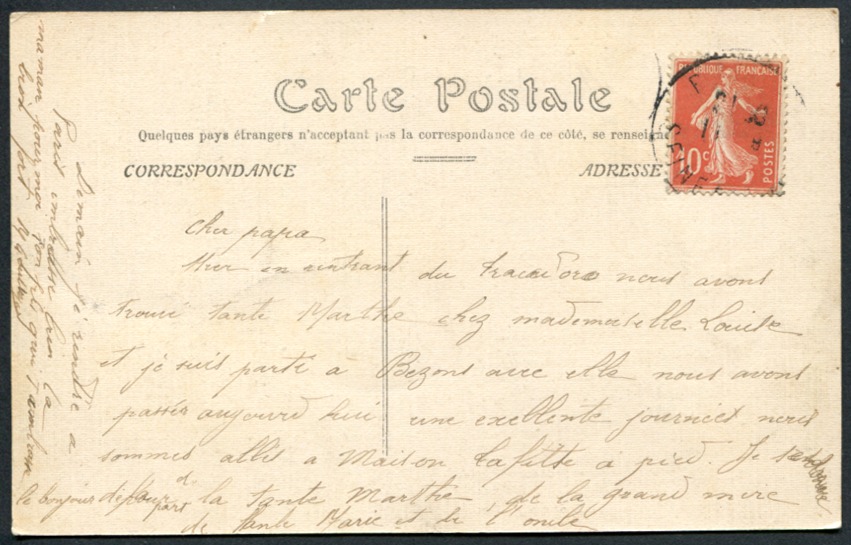 Carte Postale
Quelques pays étrangers n'acceptant pas la correspondance de ce côté, se renseigner
CORRESPONDANCE
ADRESSE
REPUBLIQUE FRANÇAISE
10c
POSTES
cher papa
hier en rentrant du nous avons
trouvé tante Marthe chez mademoiselle Louise
et je suis parti à Bezons avec elle nous avons
passés aujourd hui une exellente journées nous
sommes allés a Maison Lafitte a pied. Je te donne
le bonjour de la part de la tante Marthe, de la grand mere
de tante Marie et de l'oncle
demain a
Paris embrasse bien la
maman pour moi ton fils qui t'
bien fort